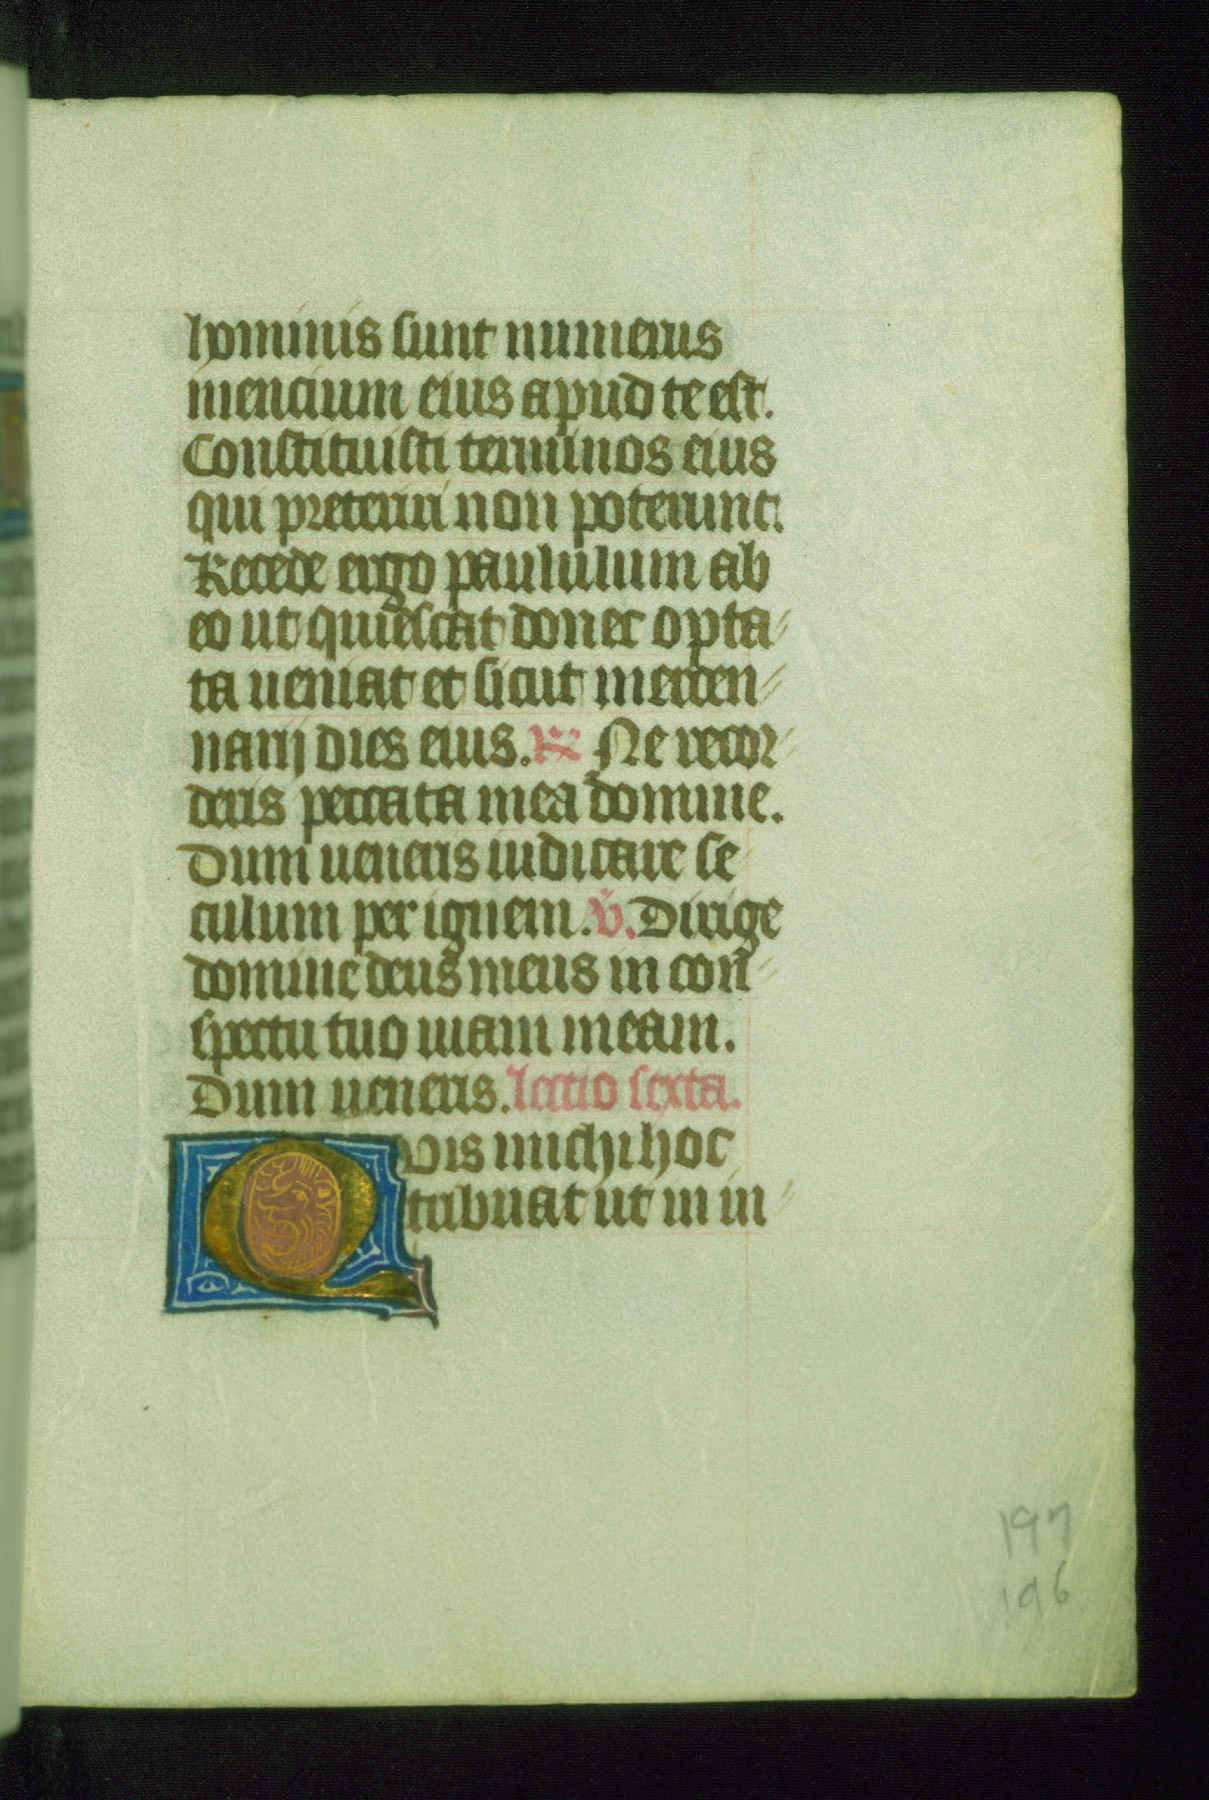 hominis sunt numerus
mencium eius apud te est.
Constituisti terminos eius
qui preteriri non poterunt.
Recede ergo paululum ab
eo ut quiescat donec opta
ta ueniat et sicut mercen
narij dies eius. R Ne recor
deris peccata mea domine.
Dum ueneris iudicare se
culum per ignem. V. Dirige
domine deus meus in con
spectu tuo uiam meam.
Dum ueneris. lectio sexta.
Quis michi hoc
tribuat ut in in
197
196